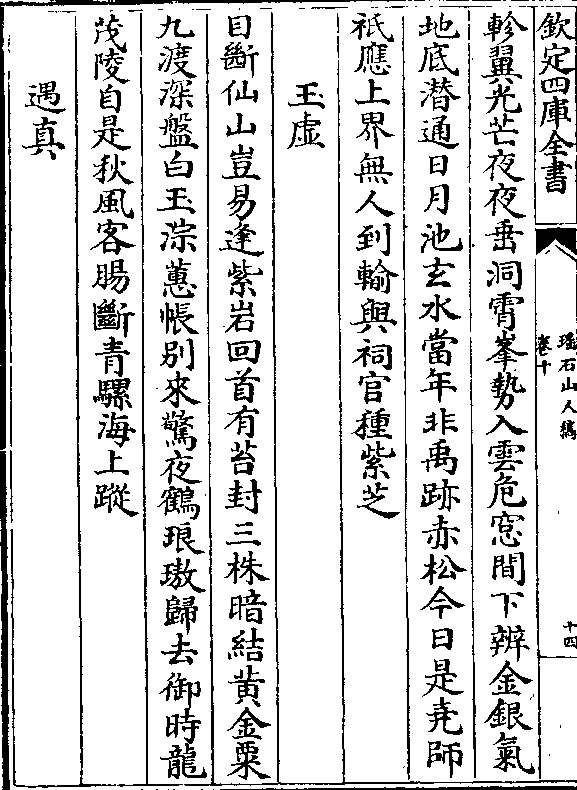 欽定四庫全書
瑤石山人稿
卷十
十四
軫翼光芒夜夜垂洞霄峯勢入雲危窓間下辨金銀氣
地底潛通日月池玄水當年非禹跡赤松今日是堯師
祇應上界無人到輸與祠官種紫芝
玉虛
目斷仙山豈易逢紫岩回首有苔封三株暗結黄金粟
九渡深盤白玉淙蕙帳别來驚夜鶴琅璈歸去御時龍
茂陵自是秋風客腸斷青騾海上蹤
遇真